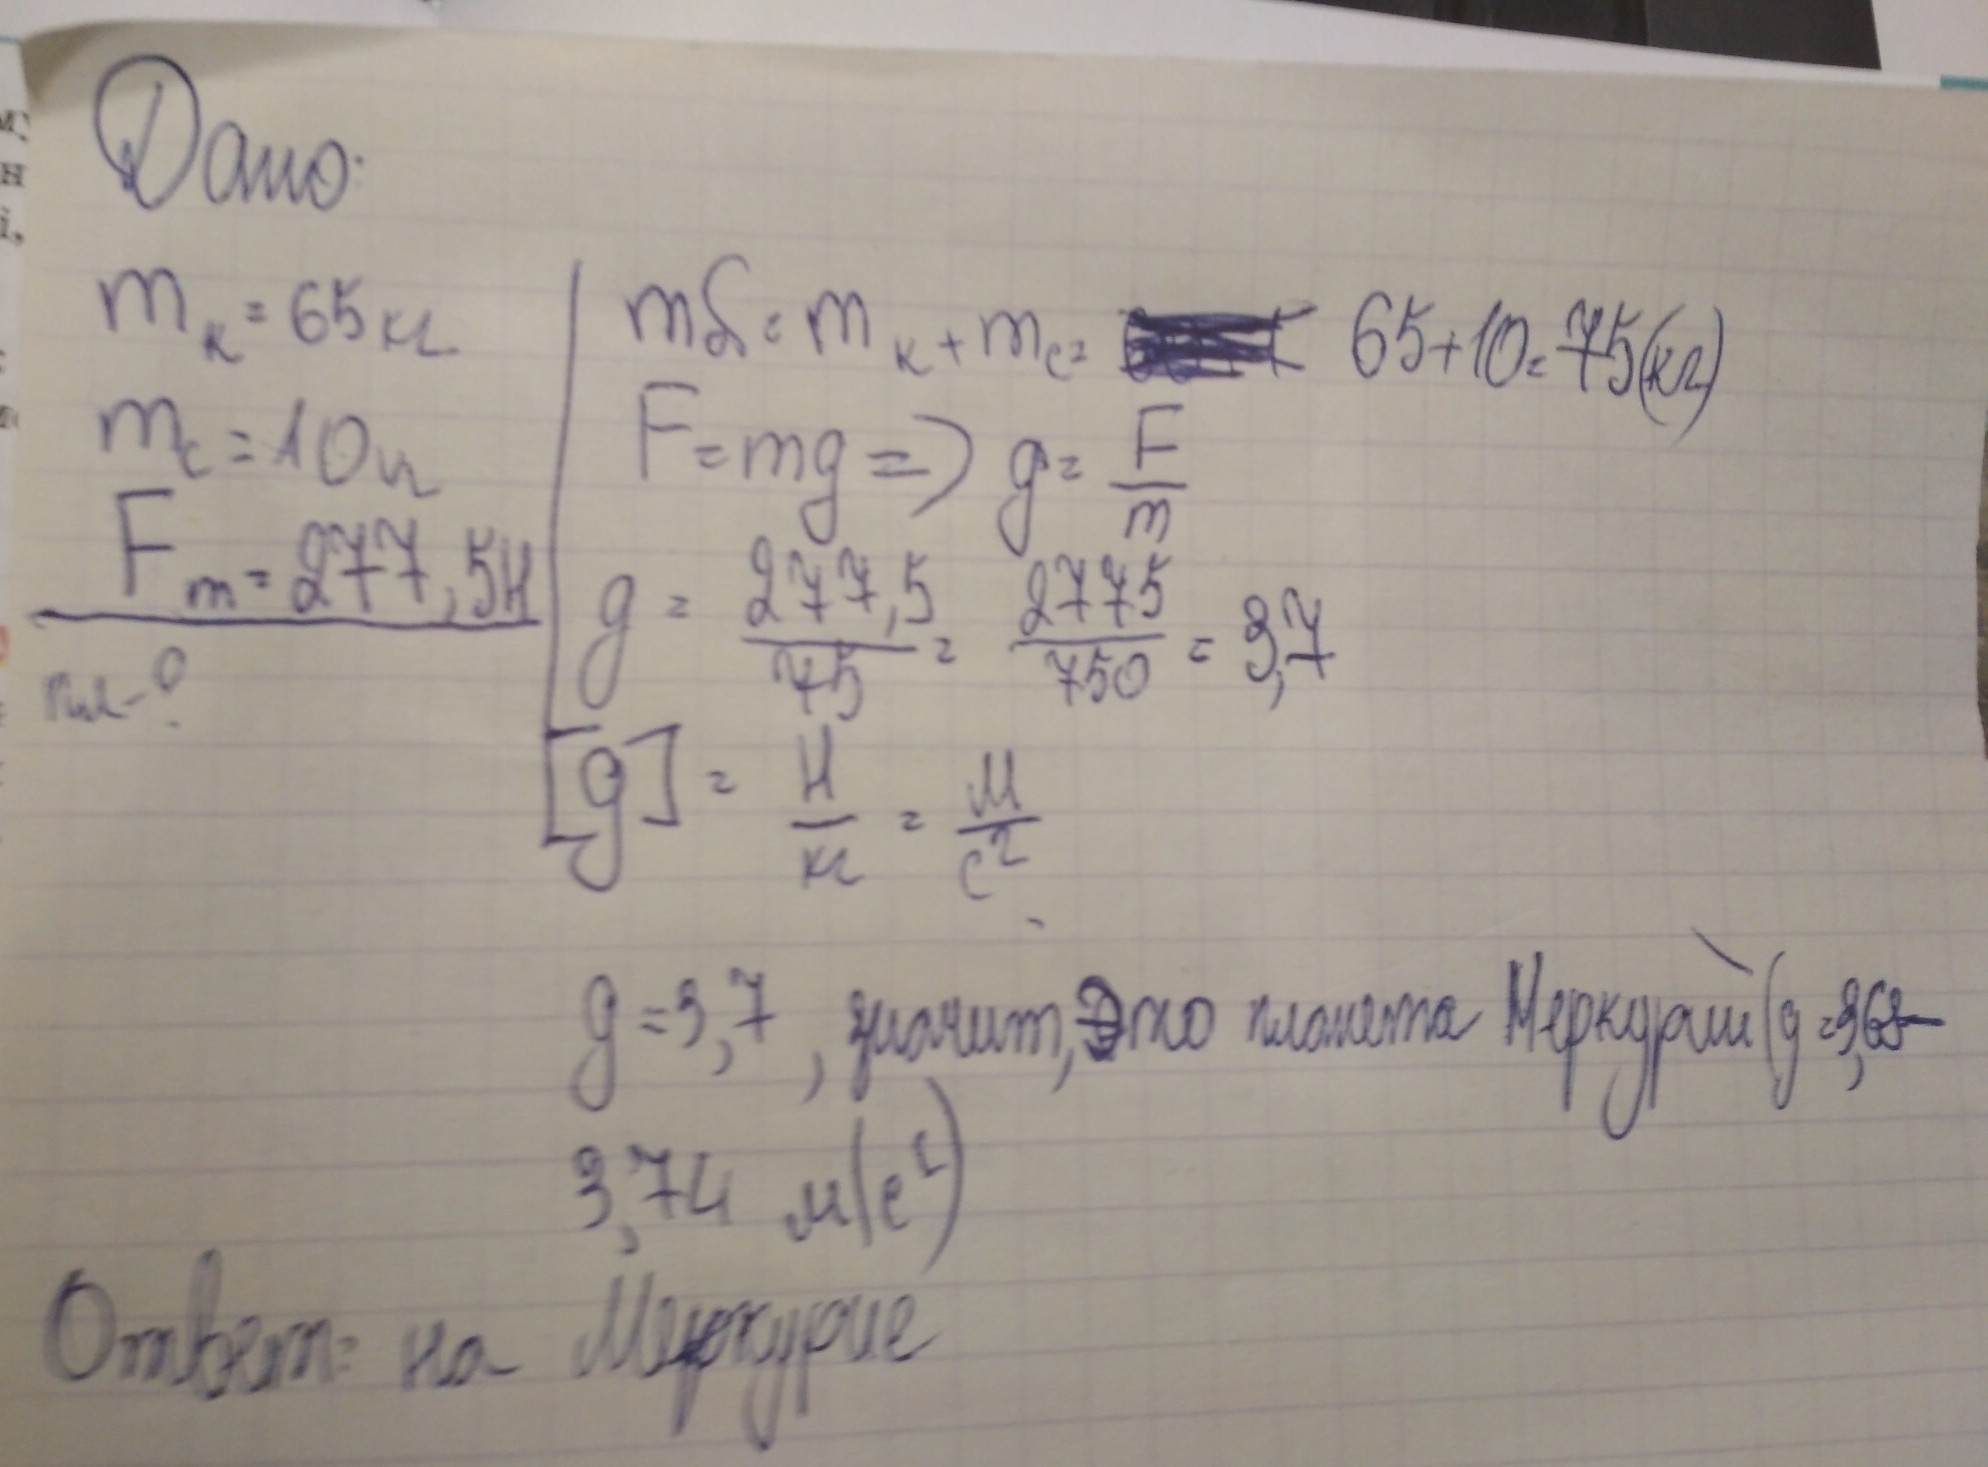 Дано:
mк = 65 кг
mс = 10 кг
Fт = 277,5Н
пл - ?
mб = mк + mс = 65+10=75(кг)
F=mg => g = F/m
g = 277,5/75 = 2775/750 = 3,7
[g] = Н/кг = м/с²
g=3,7, значит, это планета Меркурий (g=3,68-
3,74 м/с²)
Ответ: на Меркурие